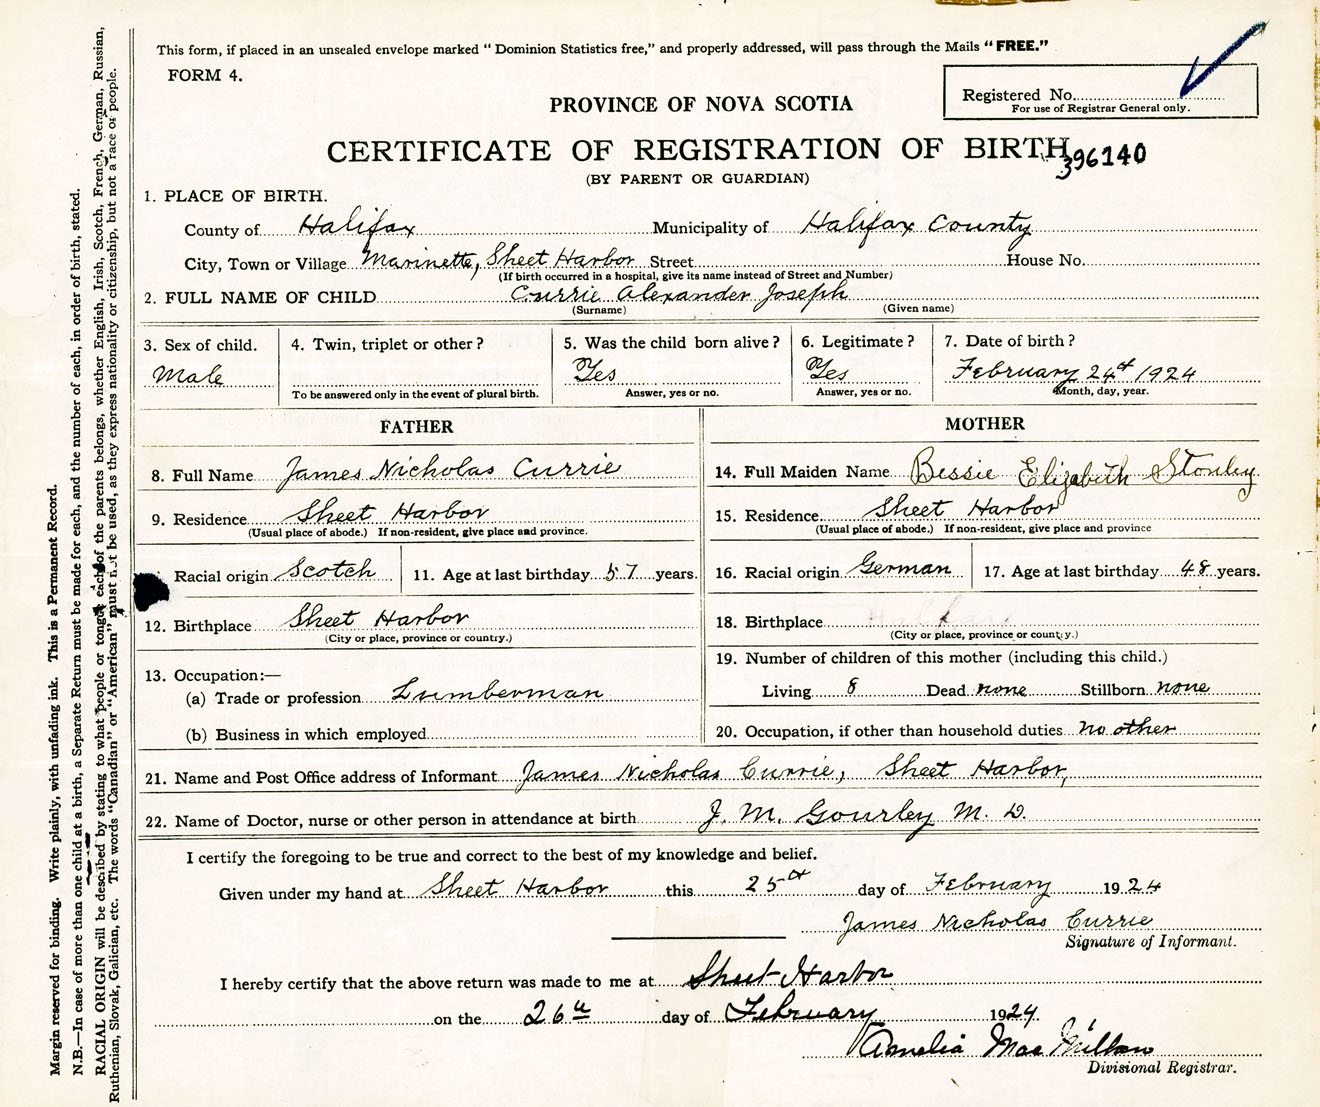 This form, if placed in an unsealed envelope marked “ Dominion Statistics free,” and properly addressed, will pass through the Mails “FREE.”
FORM 4.
Registered No.
For use of Registrar General only.
PROVINCE OF NOVA SCOTIA
CERTIFICATE OF REGISTRATION OF BIRTH
396140
(BY PARENT OR GUARDIAN)
1. PLACE OF BIRTH.
County of Halifax Municipality of Halifax County
City, Town or Village Marinette, Sheet Harbor Street House No.
(If birth occurred in a hospital, give its name instead of Street and Number)
2. FULL NAME OF CHILD Currie Alexander Joseph
(Surname) (Given name)
3. Sex of child. 4. Twin, triplet or other ? 5. Was the child born alive ? 6. Legitimate ? 7. Date of birth ?
Male Yes Yes February 24th 1924
To be answered only in the event of plural birth. Answer, yes or no. Answer, yes or no. Month, day, year.
FATHER MOTHER
8. Full Name James Nicholas Currie 14. Full Maiden Name Bessie Elizabeth
9. Residence Sheet Harbor 15. Residence Sheet Harbor
(Usual place of abode.) If non-resident, give place and province. (Usual place of abode.) If non-resident, give place and province
Racial origin Scotch 11. Age at last birthday 57 years. 16. Racial origin German 17. Age at last birthday 48 years.
12. Birthplace Sheet Harbor 18. Birthplace
(City or place, province or country.) (City or place, province or country.)
13. Occupation:— 19. Number of children of this mother (including this child.)
(a) Trade or profession Lumberman Living 8 Dead none Stillborn none
(b) Business in which employed 20. Occupation, if other than household duties no other
21. Name and Post Office address of Informant James Nicholas Currie, Sheet Harbor,
22. Name of Doctor, nurse or other person in attendance at birth J. M. Gourley M. D.
I certify the foregoing to be true and correct to the best of my knowledge and belief.
Given under my hand at Sheet Harbor this 25th day of February 1924
James Nicholas Currie
Signature of Informant.
I hereby certify that the above return was made to me at Sheet Harbor
on the 26th day of February 1924.
Amelia MacMillan
Divisional Registrar.
Margin reserved for binding. Write plainly, with unfading ink. This is a Permanent Record.
N.B.—In case of more than one child at a birth, a Separate Return must be made for each, and the number of each, in order of birth, stated.
RACIAL ORIGIN will be described by stating to what people or tongue each of the parents belongs, whether English, Irish, Scotch, French, German, Russian,
Ruthenian, Slovak, Galician, etc. The words “Canadian” or “American” must not be used, as they express nationality or citizenship, but not a race or people.